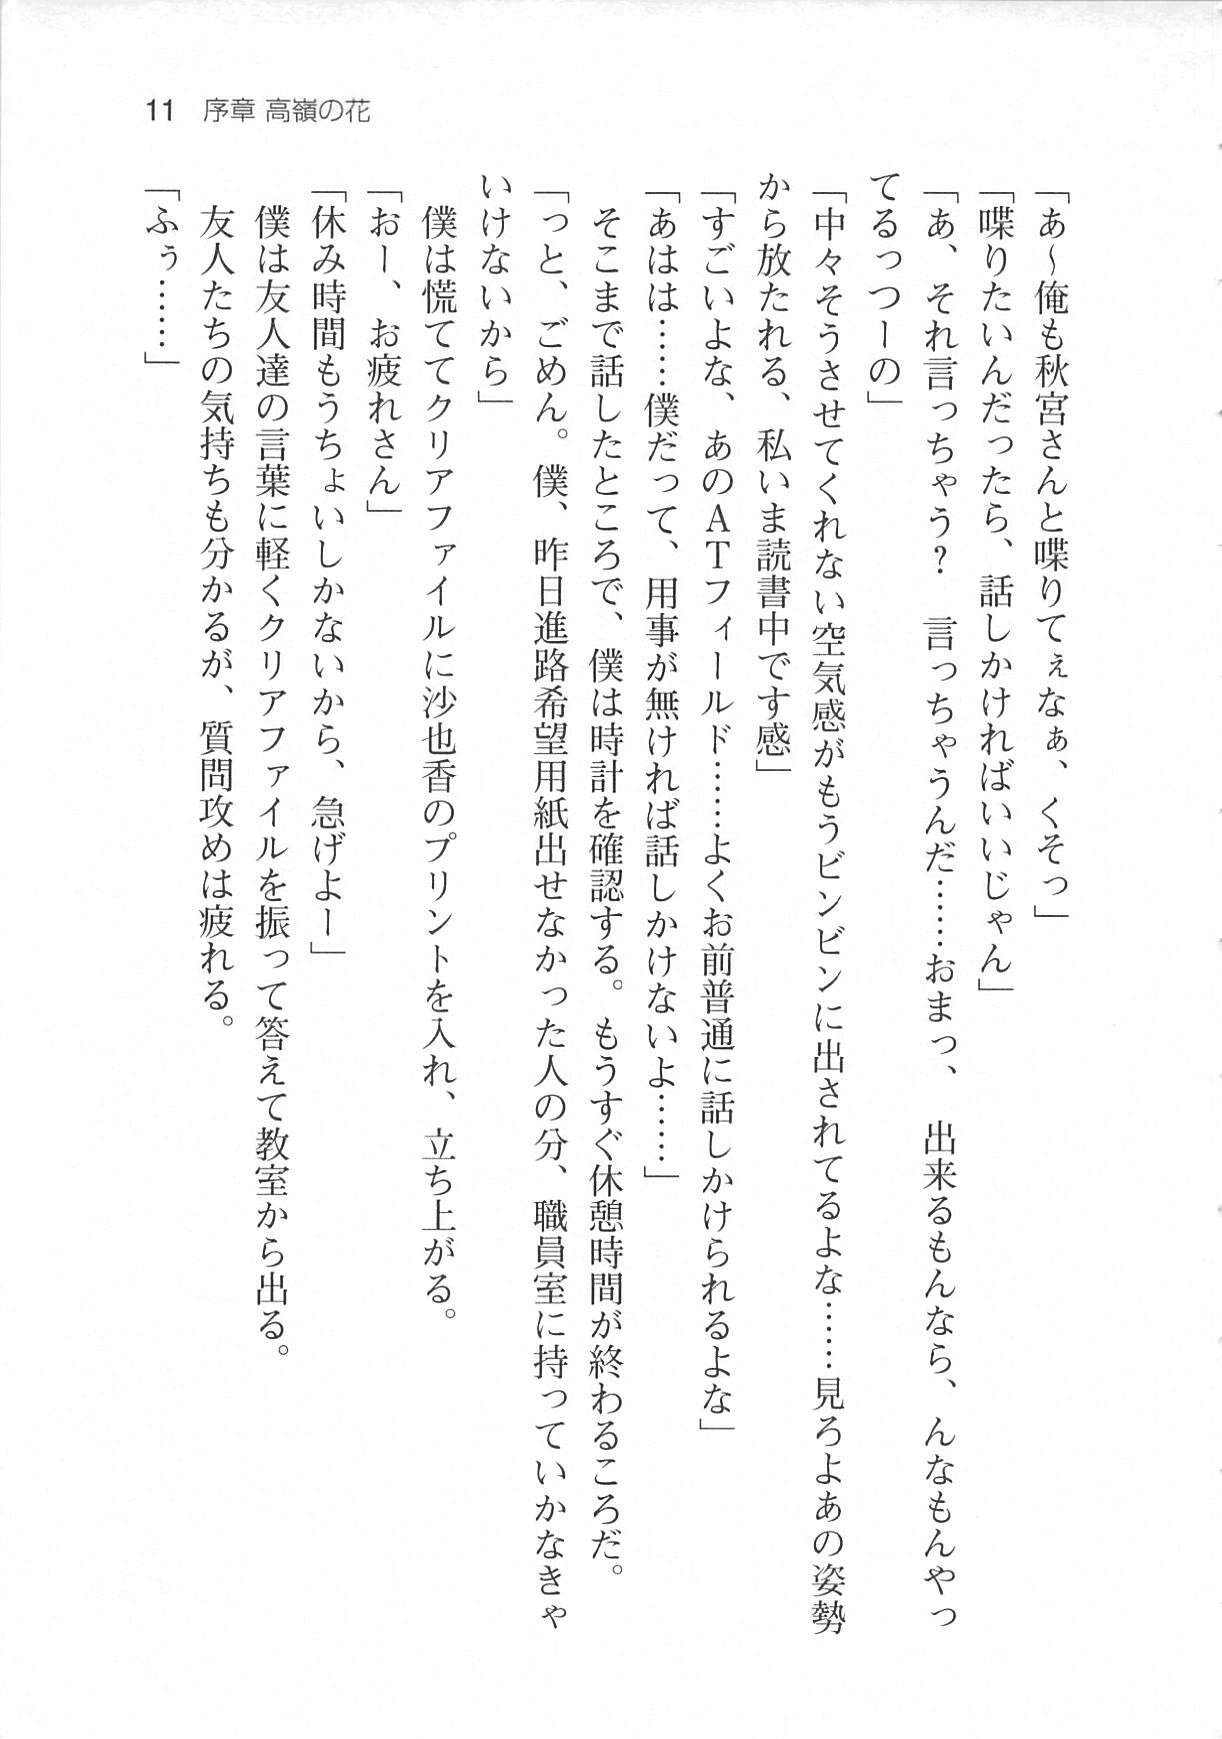 11 序章 高嶺の花
「あ〜俺も秋宮さんと喋りてぇなぁ、くそっ」
「喋りたいんだったら、話しかければいいじゃん」
「あ、それ言っちゃう？　言っちゃうんだ……おまっ、　出来るもんなら、んなもんやっ
てるっつーの」
「中々そうさせてくれない空気感がもうビンビンに出されてるよな……見ろよあの姿勢
から放たれる、私いま読書中です感」
「すごいよな、あのＡＴフィールド……よくお前普通に話しかけられるよな」
「あはは……僕だって、用事が無ければ話しかけないよ……」
　そこまで話したところで、僕は時計を確認する。もうすぐ休憩時間が終わるころだ。
「っと、ごめん。僕、昨日進路希望用紙出せなかった人の分、職員室に持っていかなきゃ
いけないから」
　僕は慌ててクリアファイルに沙也香のプリントを入れ、立ち上がる。
「おー、お疲れさん」
「休み時間もうちょいしかないから、急げよー」
　僕は友人達の言葉に軽くクリアファイルを振って答えて教室から出る。
　友人たちの気持ちも分かるが、質問攻めは疲れる。
「ふぅ……」